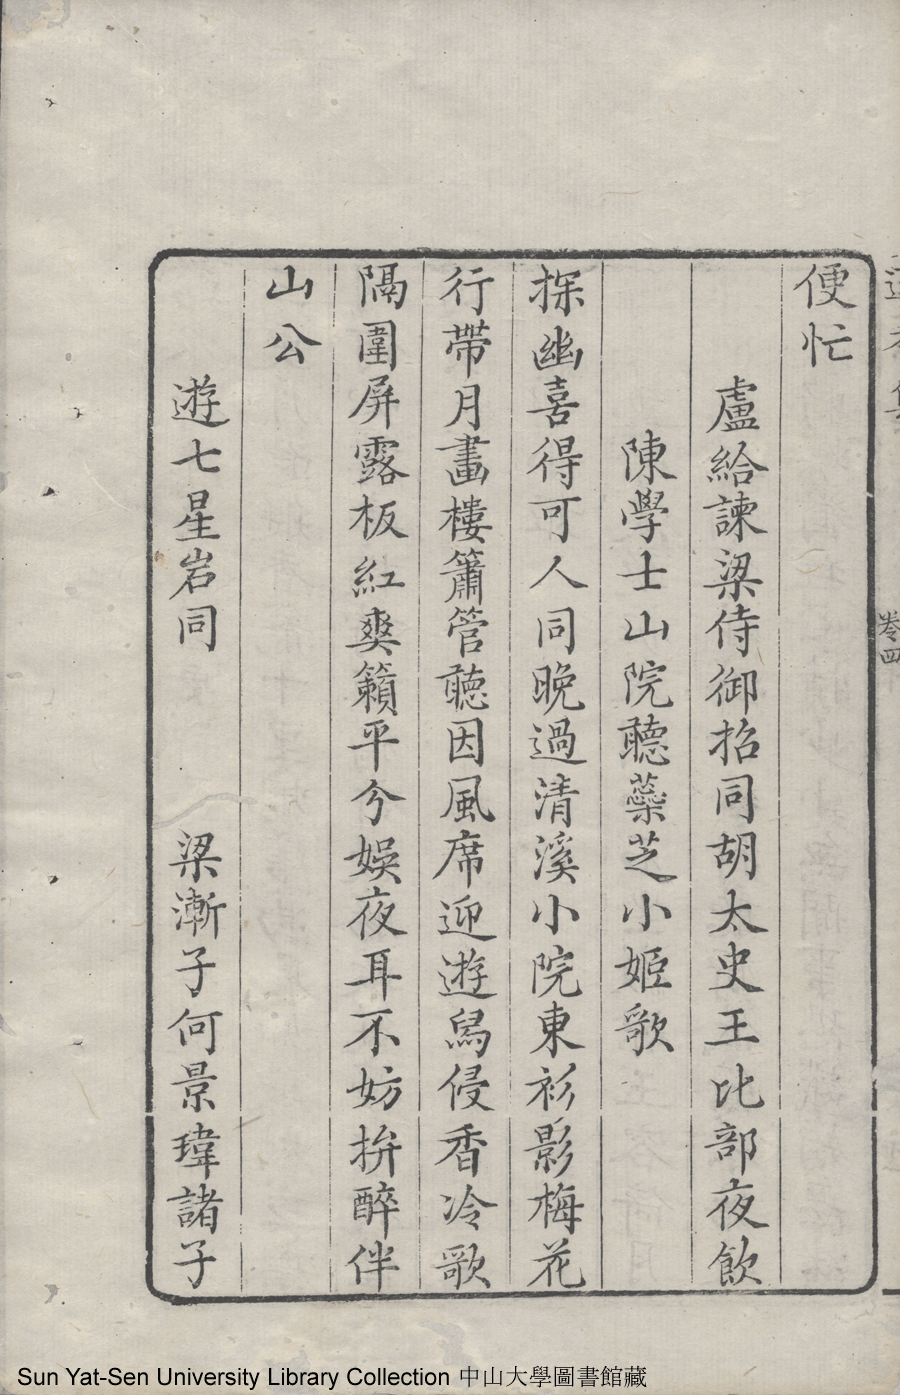 便忙
盧給諫梁侍御招同胡太史王比部夜飲
陳學士山院聽蘂芝小姬歌
探幽喜得可人同晚過清溪小院東衫影梅花
行帶月畫樓簫管聽因風席迎遊舄侵香冷歌
隔圍屏露板紅爽籟平兮娛夜耳不妨拚醉伴
山公
遊七星岩同 梁漸子何景瑋諸子
卷四
Sun Yat-Sen University Library Collection 中山大學圖書館藏